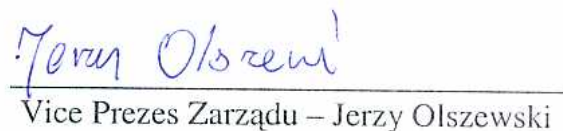 Jerzy Olszewski
Vice Prezes Zarządu – Jerzy Olszewski